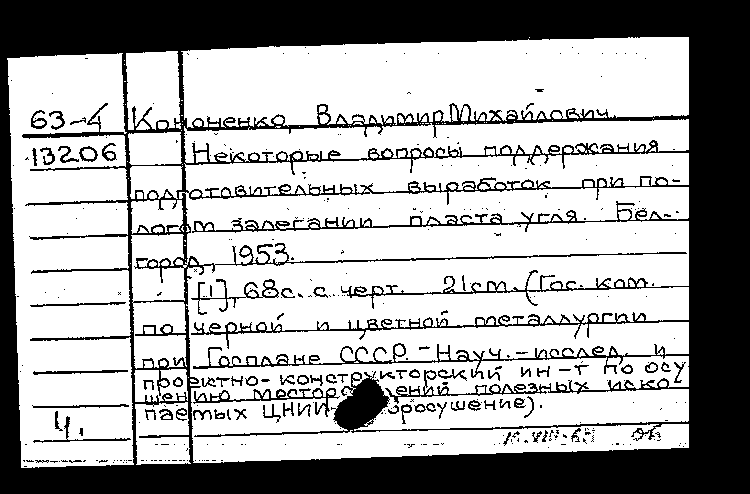 63-4 Кононенко, Владимир Михайлович.
13206 Некоторые вопросы поддержания
подготовительных выработок при по-
логом залегании пласта угля. Бел-
город, 1953.
[1], 68с. с черт. 21см. (Гос. ком.
по черной и цветной металлургии
при Госплане СССР. - Науч.-исслед. и
проектно-конструкторский ин-т по осу
шению место ений полезных иско-
паемых ЦНИИ осушение).
Ч.